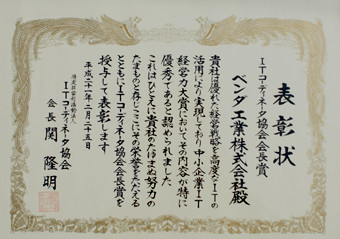 表彰状
ITコーディネータ協会会長賞
ベンダ工業株式会社殿
貴社は優れた経営戦略を高度なITの
活用により実現しており中小企業IT
経営力大賞においてその内容が特に
優秀であると認められました
これはひとえに貴社のたゆまぬ努力の
たまものと存じここにその栄誉をたたえる
とともにITコーディネータ協会会長賞を
授与して表彰します
平成二十一年二月二十五日
特定非営利活動法人
ITコーディネータ協会
会長 関 隆明